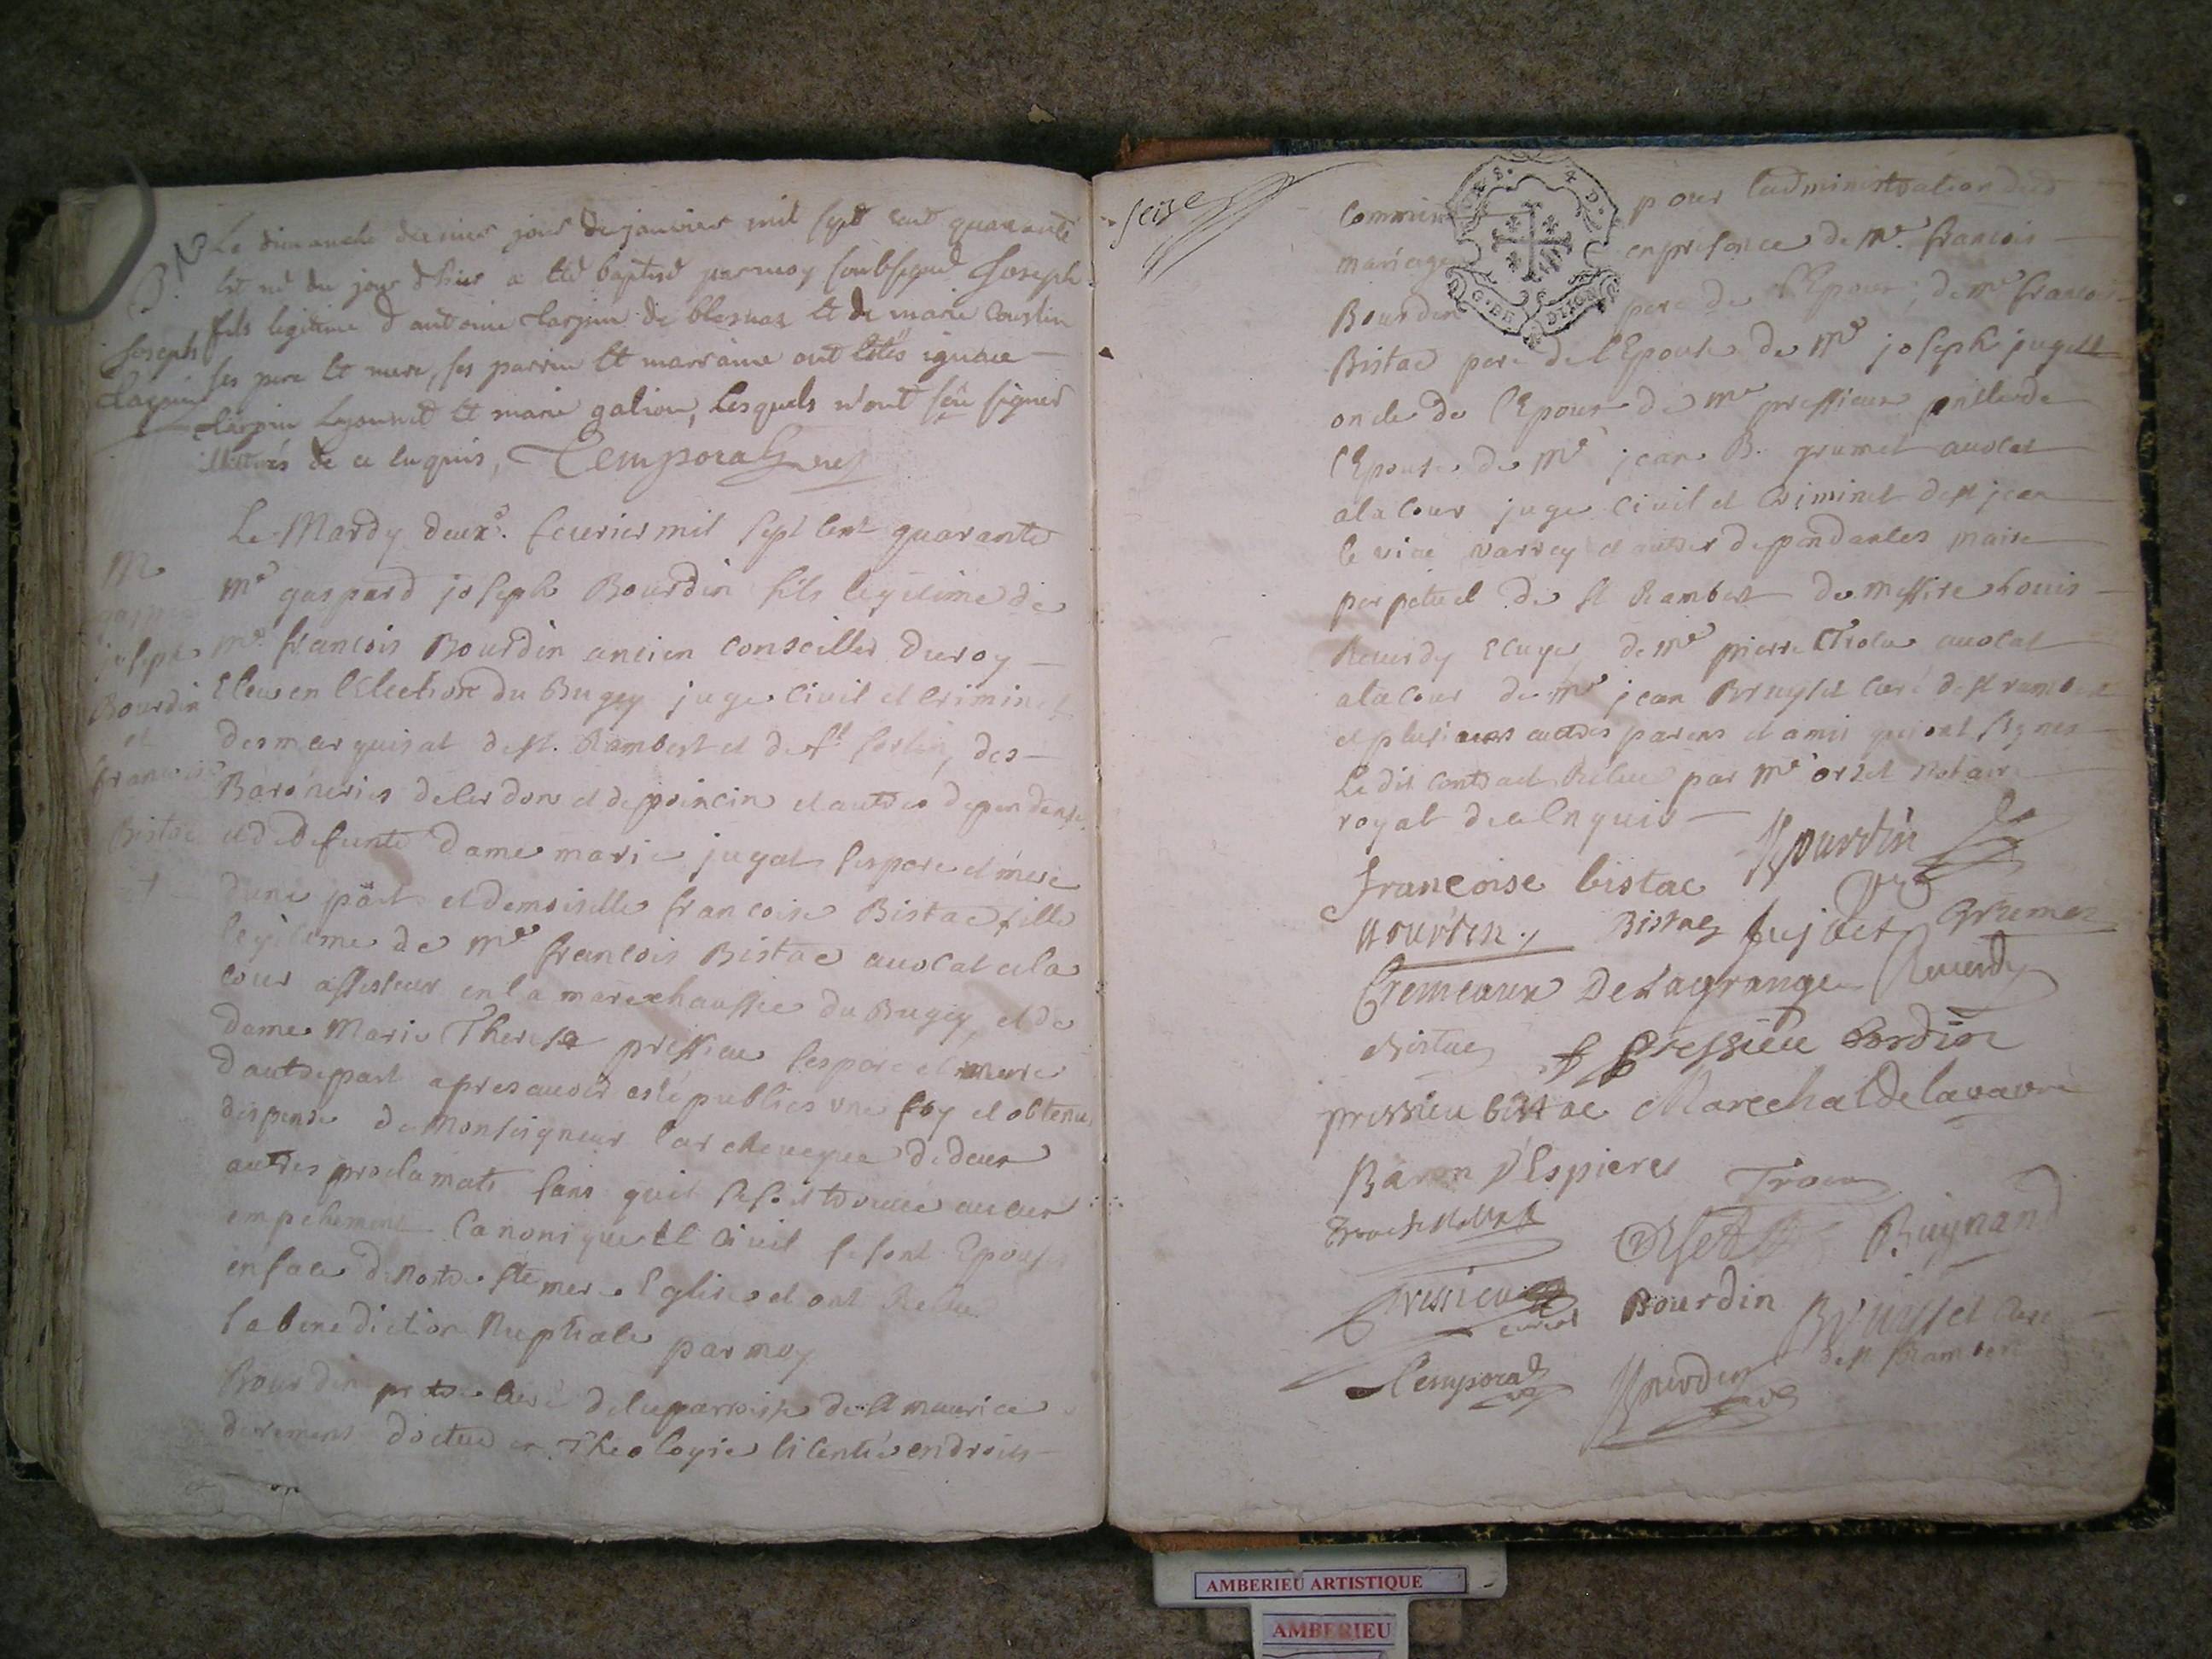 B. N
Joseph
Le dimanche dernier jour de janvier mil sept cent quarante
est né du jour d'hier a eté baptisé par moy soubsigné Joseph
fils legitime d'antoine de et de marie
ses pere et mere, ses parrin et marraine ont étés ignace
et marie galion, Lesquels n'ont sçu signer
de ce enquis, Temporal
M
gasp
joseph
Bourdin
et
francoise
Bistac
Le Mardy deux.e feurier mil sept cent quarante
Me gaspard joseph Bourdin fils legitime de
Me francois Bourdin ancien conseiller du roy
Eleu en l'Election du Bugey juge civil et criminel
des marquisat de st. Rambert et de st sorlin, des
Baroneries de cerdon et de poincin et autres dependances
et de defunte Dame marie jugat ses pere et mere
d'une part et demoiselle francoise Bistac fille
legitime de Me francois Bistac auocat a la
cour assesseur en la marechaussée du Bugey, et de
dame Marie Therese pressieu ses pere et mere
d'autre part apres auoir esté publiés une foy et obtenu
dispense de Monseigneur l'archeueque de deux
autres proclamats sans qu'il se soit trouué aucun
empechement canonique et ciuil se sont Epousé
en face de notre ste mere Eglise et ont Receu
la benediction Nuptiale par moy
Bourdin pretre curé de la parroisse de st maurice
de remens docteur en Theologie licentié en droits
seize
G. DE DIJON
commis pour l'administration dud
mariage en presence de Me. francois
Bourdin pere de l'Epoux de Me francois
Bistac pere de l'Epouse de Me joseph jugat
oncle de l'Epoux de Me pressieux oncle de
l'Epouse de Me jean B. grumet auocat
a la cour juge civil et Criminel de st jean
le vieu varrey et autres dependantes maire
perpetuel de st Rambert de messire Louis
Reuerdy Ecuyer de Me pierre Trocu auocat
a la cour de Me jean Bruyset curé de st rambert
et plusieurs autres parens et amis qui ont signes
Le dit contract Receu par Me orset notaire
royal de ce enquis
francoise bistac Bourdin
Bourdin. Bistac Jujat Grumet
Cremeaux De Lagrange Reuerdy
Bistac pressieu Bordin
pressieu bistac Marechal De lavavre
Baron d'Espieres Trocu
Orset Buynand
Pressieu Bourdin Bruyset curé
de st Rambert
Temporal Bourdin
AMBERIEU ARTISTIQUE
AMBERIEU